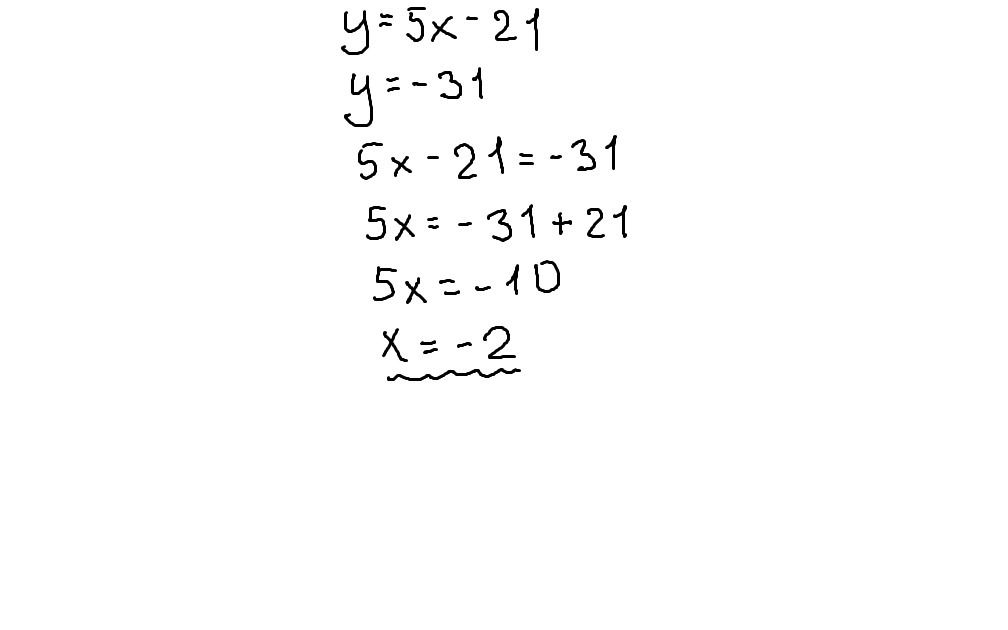 y = 5x - 21
y = -31
5x - 21 = -31
5x = -31 + 21
5x = -10
x = -2